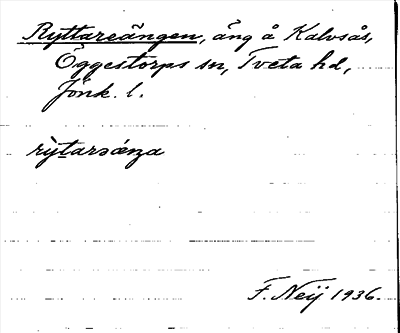 Ryttareängen, äng å Kalvsås,
Öggestorps sn, Tveta hd,
Jönk. l.
rỳtarsǽŋa
F. Neij 1936.